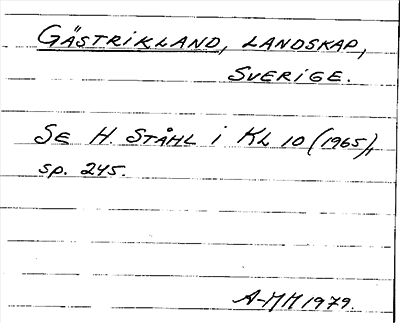 GÄSTRIKLAND, LANDSKAP,
SVERIGE.
SE H. STÅHL i KL 10 (1965),
sp. 245.
A-MM 1979.